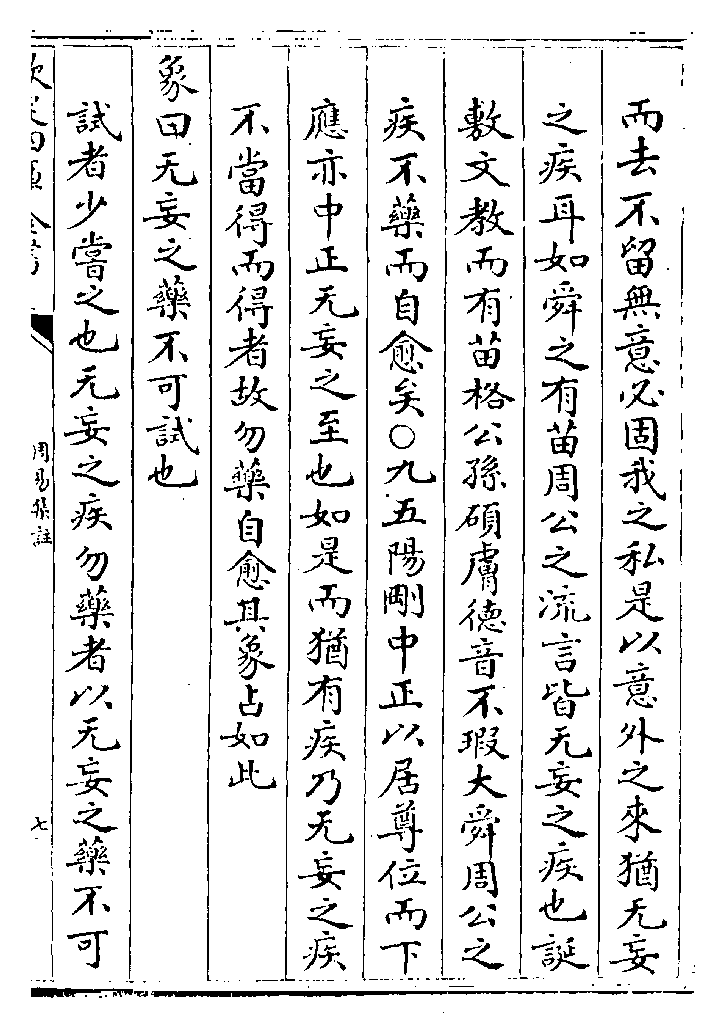 而去不留無意必固我之私是以意外之來猶无妄
之疾耳如舜之有苗周公之流言皆无妄之疾也誕
敷文教而有苗格公孫碩膚德音不瑕大舜周公之
疾不藥而自愈矣○九五陽剛中正以居尊位而下
應亦中正无妄之至也如是而猶有疾乃无妄之疾
不當得而得者故勿藥自愈其象占如此
象曰无妄之藥不可試也
試者少嘗之也无妄之疾勿藥者以无妄之藥不可
周易集註
七